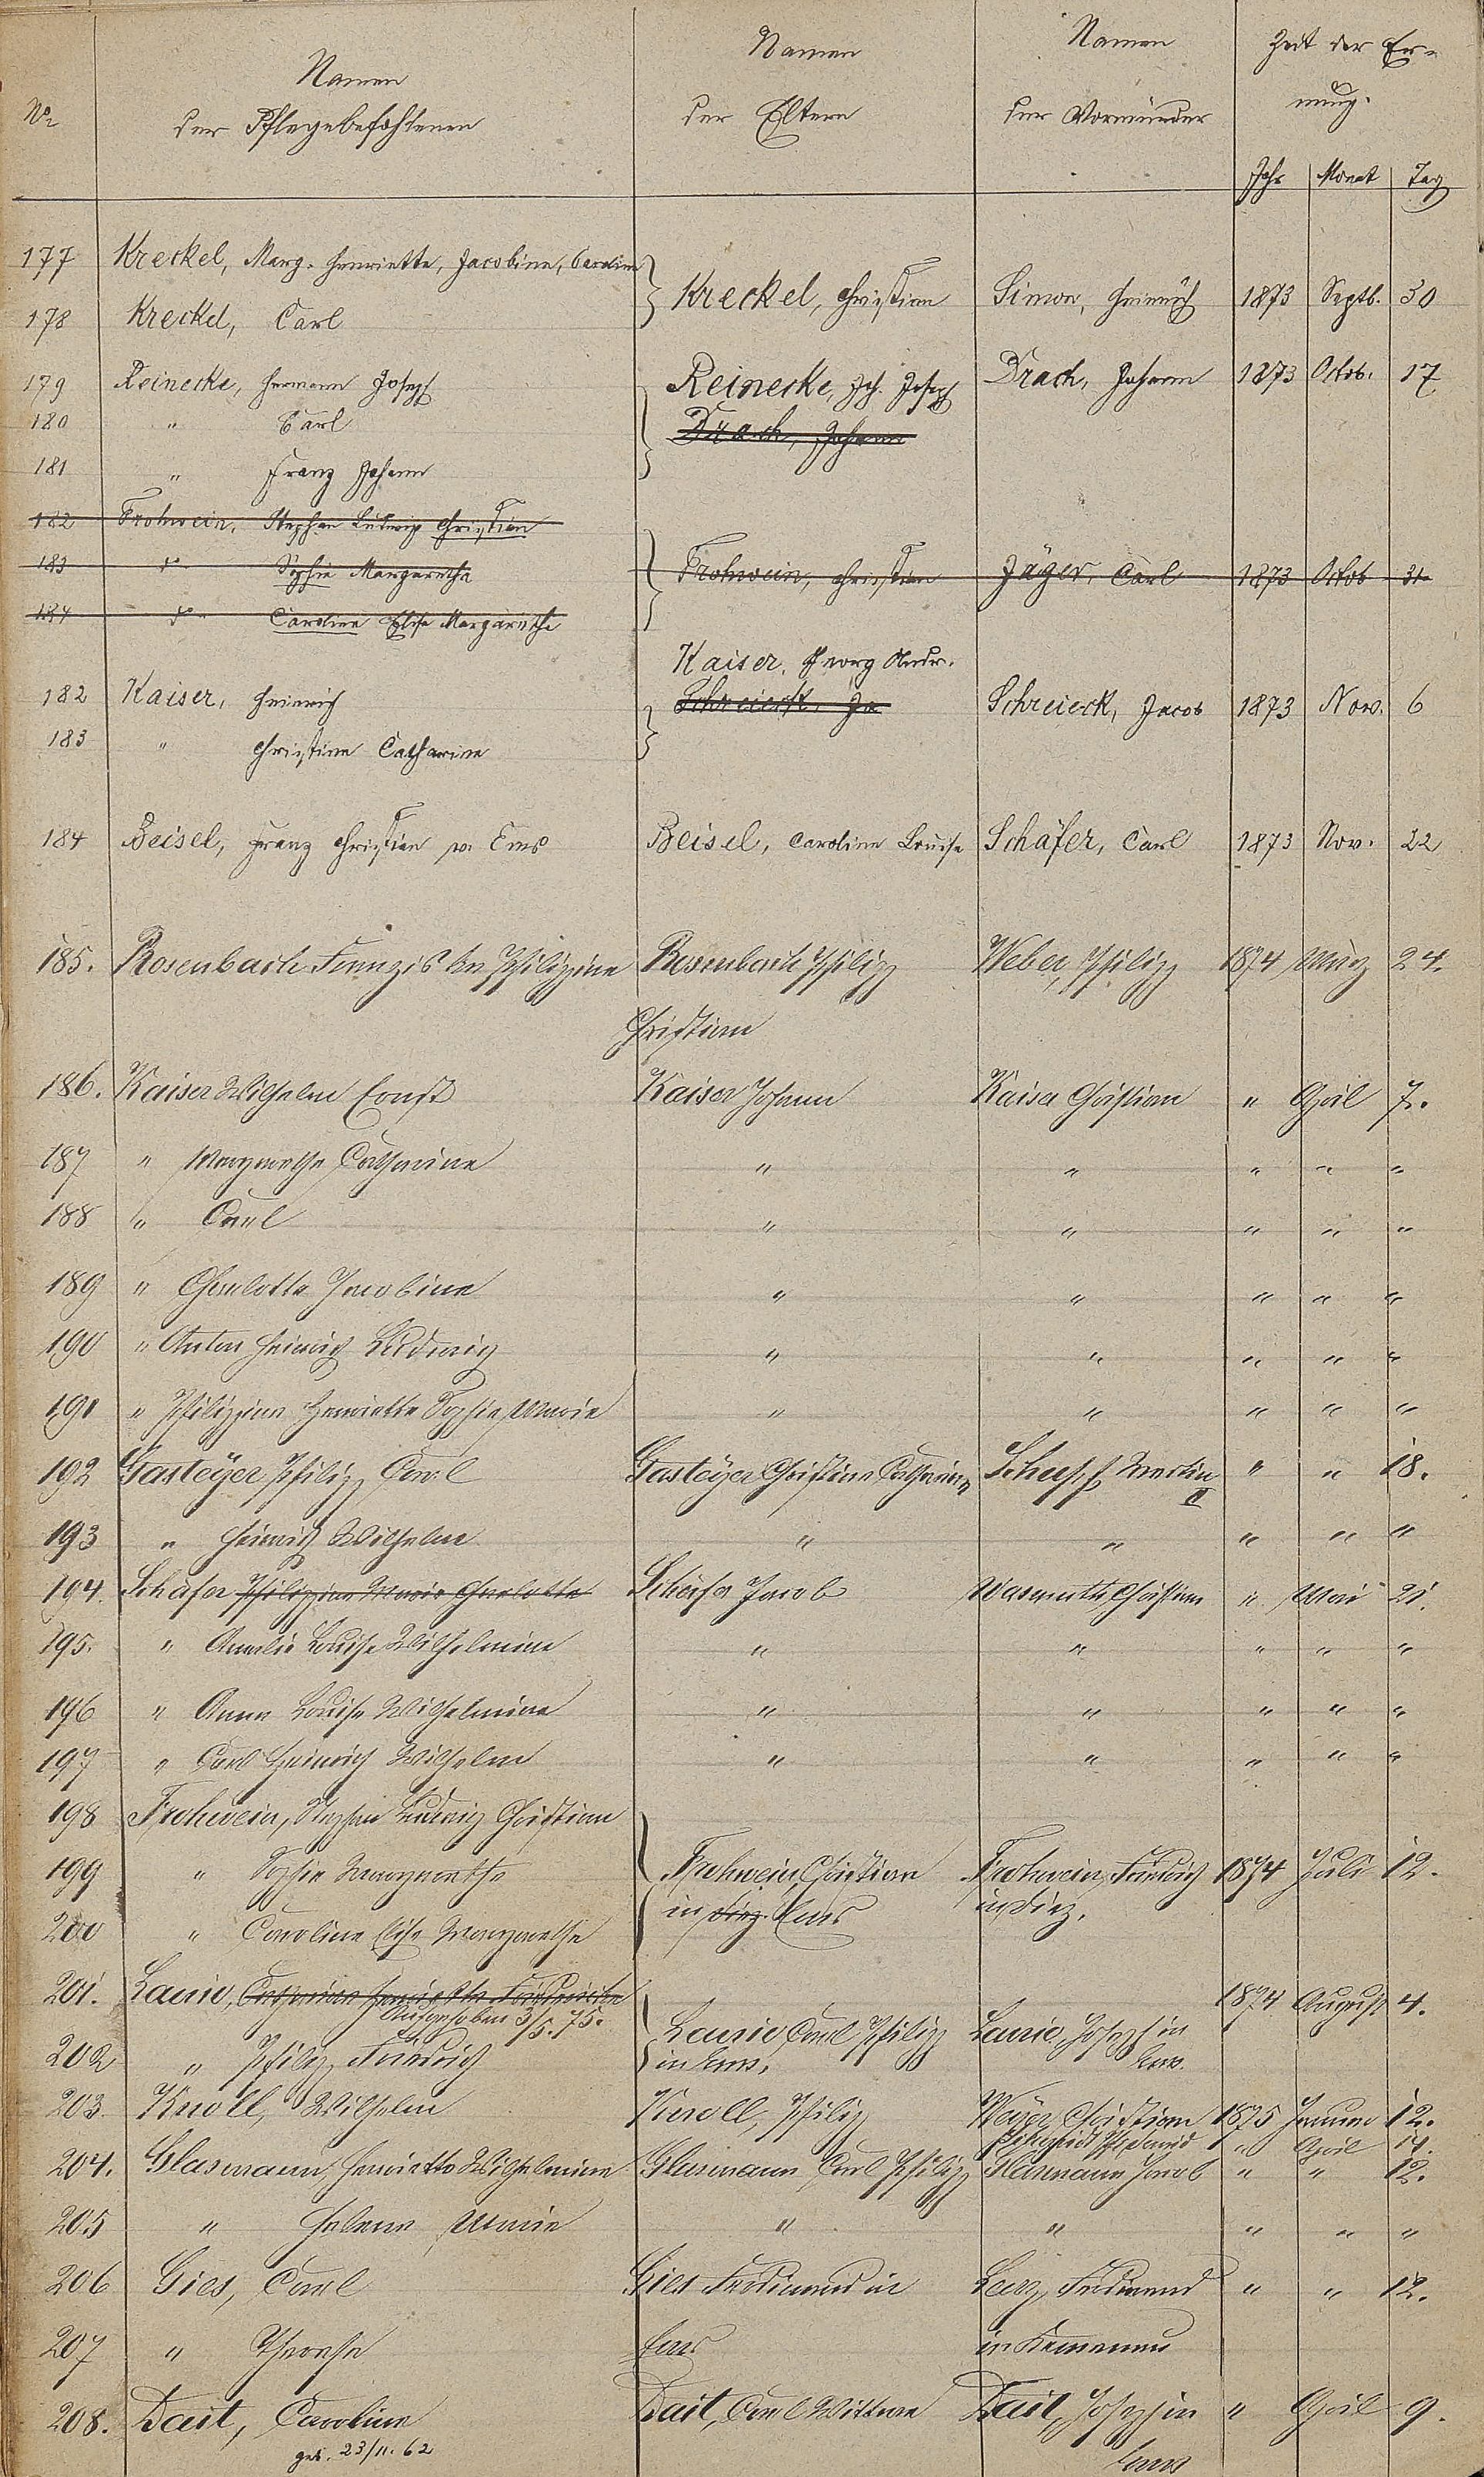 Namen Namen Zeit der Er-
Namen
No der Pflegebefohlenen der Eltern der Vormünder nung.
Jahr Monat Tag
177 Kreckel, Marg. Henriette, Jacobine, Caroline
Kreckel, Christian Simon, Heinrich 1873 Septb. 30
178 Kreckel, Carl
179 Reinecke, Hermann Joseph Reinecke, Joh. Joseph Drach, Johann 1873 Octob. 17
180 " Carl Drach, Johann
181 " Franz Johann
182 Frohwein, Stephan Ludwig Christian
183 " Sophie Margaretha Frohwein, Christian Jäger, Carl 1873 Octob 31
184 " Caroline Elise Margarethe
Kaiser, Georg Andr.
182 Kaiser, Heinrich Schreieck, Ja Schreieck, Jacob 1873 Nov. 6
183 " Christine Catharine
184 Beisel, Franz Christian v. Ems Beisel, Caroline Louise Schäfer, Carl 1873 Nov. 22
185. Rosenbach Franziska Philippine Rosenbach Philipp Weber, Philipp 1874 März 24.
Christian
186. Kaiser Wilhelm Ernst Kaiser Johann Kaiser Christian " April 7.
187 " Margarethe Catharine " " " " "
188 " Carl " " " " "
189 " Charlotte Jacobine " " " " "
190 " Anton Heinrich Ludwig " " " " "
191 " Philippine Henriette Sophie Marie " " " " "
192 Gasteyer Philipp Carl Gasteyer Christine Catharine Schupp Martin II " " 18.
193 " Heinrich Wilhelm " " " " "
194. Schäfer Philippine Marie Charlotte Schäfer Jacob Wasmuth Christian " Mai 21.
195. " Amalie Louise Wilhelmine " " " " "
196 " Anna Louise Wilhelmine " " " " "
197 " Carl Heinrich Wilhelm " " " " "
198 Frohwein, Stephan Ludwig Christian
199 " Sophie Margarethe Frohwein, Christian Frohwein, Friedrich 1874 Juli 12.
in Diez. Ems in Diez.
200 " Caroline Elise Margarethe
201. Laurie, Catharine Henriette 1874 August 4.
Aufgehoben 3/5. 75.
Laurie Carl Philipp Laurie, Joseph in
202 " Philipp Friedrich in Ems. Ems.
203. Knoll, Wilhelm Knoll, Philipp Meyer, Christian 1875 Januar 12.
Schmidt Ph. David " April 14.
204. Glasmann, Henriette Wilhelmine Glasmann Carl Philipp Glasmann Jacob " " 12.
205 " Helene Marie " " " " "
206 Gies, Carl Gies Ferdinand in Ferdinand " " 12.
207 " Therese Ems in Kemmenau
208. Dait, Caroline Dait, Carl Wittwe Dait, Joseph in " April 9.
geb. 23/11. 62 Ems